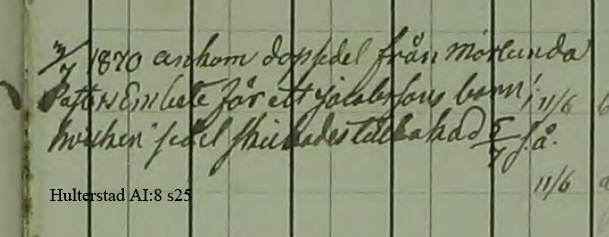 3/7 1870 ankom dopsedel från Mörlunda
Past. Embete för ett Jakobssons barn! 11/6
hvilken sedel skickades tillbakad 5/7 s. å.
11/6
Hulterstad AI:8 s25